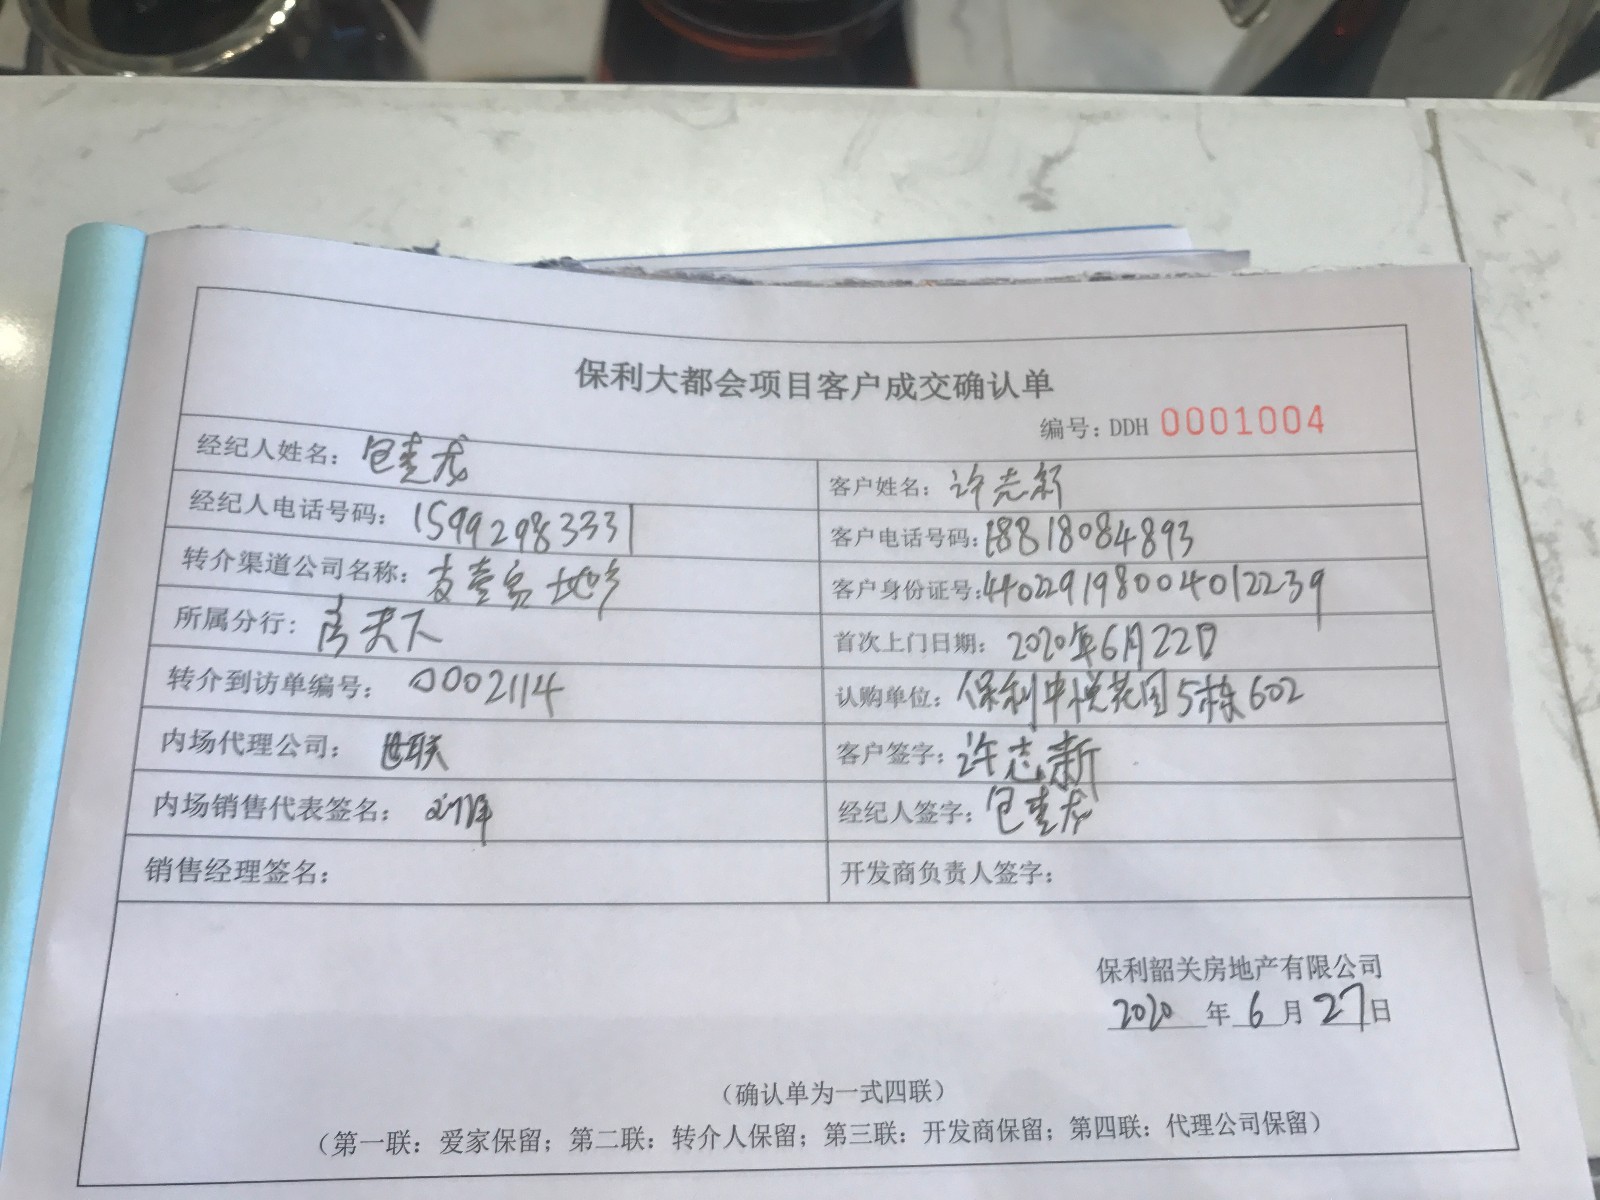 保利大都会项目客户成交确认单
编号：DDH 0001004
经纪人姓名：包
客户姓名：许志新
经纪人电话号码：15992983331
客户电话号码：18818084893
转介渠道公司名称：地产
客户身份证号：440229198004012239
所属分行：房天下
首次上门日期：2020年6月22日
转介到访单编号：0002114
认购单位：保利中悦花园5栋602
内场代理公司：世联
客户签字：许志新
内场销售代表签名：
经纪人签字：包
销售经理签名：
开发商负责人签字：
保利韶关房地产有限公司
2020年6月27日
（确认单为一式四联）
（第一联：爱家保留；第二联：转介人保留；第三联：开发商保留；第四联：代理公司保留）